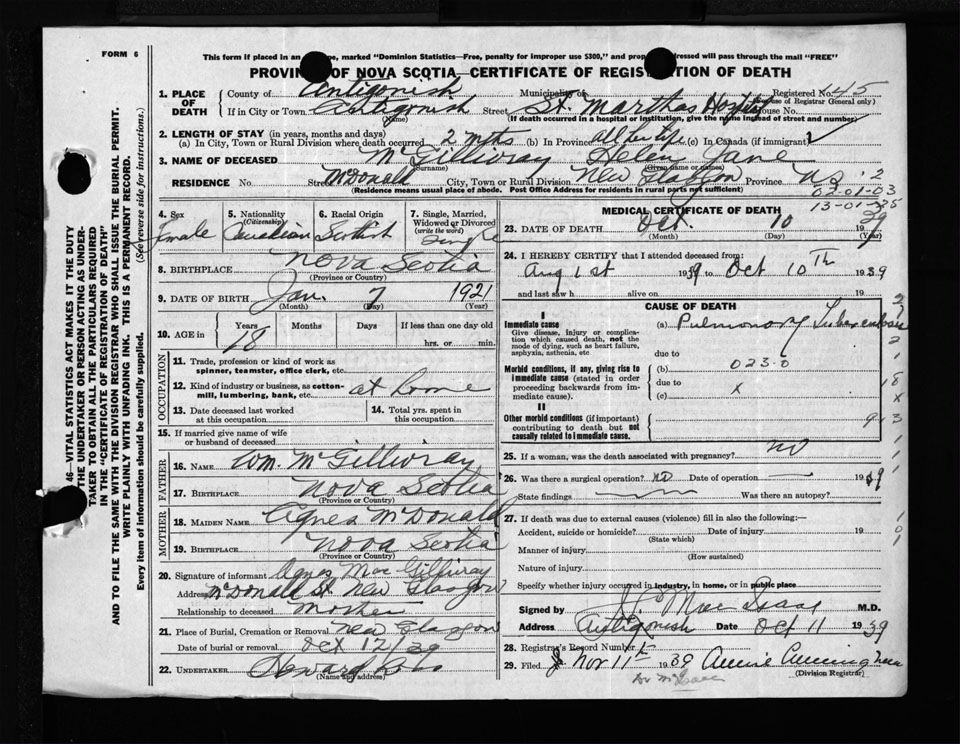 FORM 6
This form if placed in an pe, marked "Dominion Statistics—Free, penalty for improper use $300," and prop dressed will pass through the mail "FREE"
PROVIN OF NOVA SCOTIA—CERTIFICATE OF REGIST ION OF DEATH
1. PLACE OF DEATH County of Antigonish Municipality of Registered No. 45
(For use of Registrar General only)
If in City or Town Antigonish Street St. Marthas Hospital House No.
(Name) (If death occurred in a hospital or institution, give the name instead of street and number)
2. LENGTH OF STAY (in years, months and days)
(a) In City, Town or Rural Division where death occurred 2 mths (b) In Province all her life (c) In Canada (if immigrant)
3. NAME OF DECEASED McGillivray Helen Jane
(Surname) (Given name or names)
RESIDENCE No. Street McDonald City, Town or Rural Division New Glasgow Province N.S. 2
(Residence means usual place of abode. Post Office Address for residents in rural parts not sufficient)
02-01-03
13-01-25
46—VITAL STATISTICS ACT MAKES IT THE DUTY
THE UNDERTAKER OR PERSON ACTING AS UNDER-
TAKER TO OBTAIN ALL THE PARTICULARS REQUIRED
IN THE "CERTIFICATE OF REGISTRATION OF DEATH"
AND TO FILE THE SAME WITH THE DIVISION REGISTRAR WHO SHALL ISSUE THE BURIAL PERMIT.
WRITE PLAINLY WITH UNFADING INK. THIS IS A PERMANENT RECORD.
Every item of information should be carefully supplied. (See reverse side for instructions.)
4. Sex female
5. Nationality (Citizenship) Canadian
6. Racial Origin Scottish
7. Single, Married, Widowed or Divorced (write the word) Single
8. BIRTHPLACE Nova Scotia
(Province or Country)
9. DATE OF BIRTH Jan. 7 1921
(Month) (Day) (Year)
10. AGE in Years 18 Months Days If less than one day old
hrs. or min.
OCCUPATION
11. Trade, profession or kind of work as
spinner, teamster, office clerk, etc.
12. Kind of industry or business, as cotton-
mill, lumbering, bank, etc. at home
13. Date deceased last worked
at this occupation
14. Total yrs. spent in
this occupation
15. If married give name of wife
or husband of deceased
FATHER
16. NAME Wm. McGillivray
17. BIRTHPLACE Nova Scotia
(Province or Country)
MOTHER
18. MAIDEN NAME Agnes McDonald
19. BIRTHPLACE Nova Scotia
(Province or Country)
20. Signature of informant Agnes MacGillivray
Address McDonald St New Glasgow
Relationship to deceased mother
21. Place of Burial, Cremation or Removal New Glasgow
Date of burial or removal Oct 12/39
22. UNDERTAKER Howard
(Name and address)
MEDICAL CERTIFICATE OF DEATH
23. DATE OF DEATH Oct. 10 1939
(Month) (Day) (Year)
24. I HEREBY CERTIFY that I attended deceased from:
Aug 1st 1939 to Oct 10th 1939
and last saw h alive on 19
CAUSE OF DEATH
I
Immediate cause
Give disease, injury or complica-
tion which caused death, not the
mode of dying, such as heart failure,
asphyxia, asthenia, etc
(a) Pulmonary Tuberculosis
due to
Morbid conditions, if any, giving rise to
immediate cause (stated in order
proceeding backwards from im-
mediate cause).
(b) 023.0
due to
(c) x
II
Other morbid conditions (if important)
contributing to death but not
causally related to immediate cause.
25. If a woman, was the death associated with pregnancy? no
26. Was there a surgical operation? no Date of operation 1939
State findings Was there an autopsy?
27. If death was due to external causes (violence) fill in also the following:—
Accident, suicide or homicide? Date of injury 19
(State which)
Manner of injury
(How sustained)
Nature of injury
Specify whether injury occurred in industry, in home, or in public place
Signed by J. MacIsaac M.D.
Address Antigonish Date Oct 11 1939
28. Registrar's Record Number
29. Filed Nov 11th 1939 Annie Cunningham
(Division Registrar)
Dr McIsaac